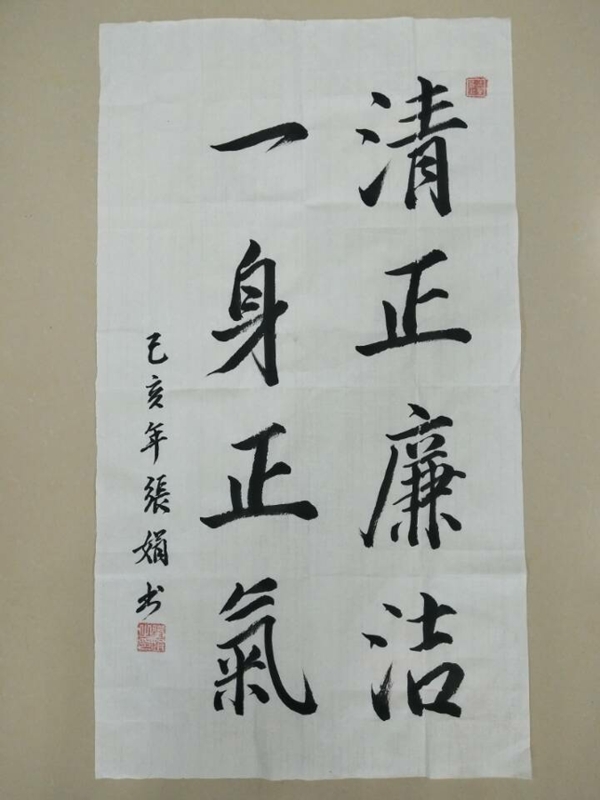 清正廉洁
一身正氣
己亥年張娟书